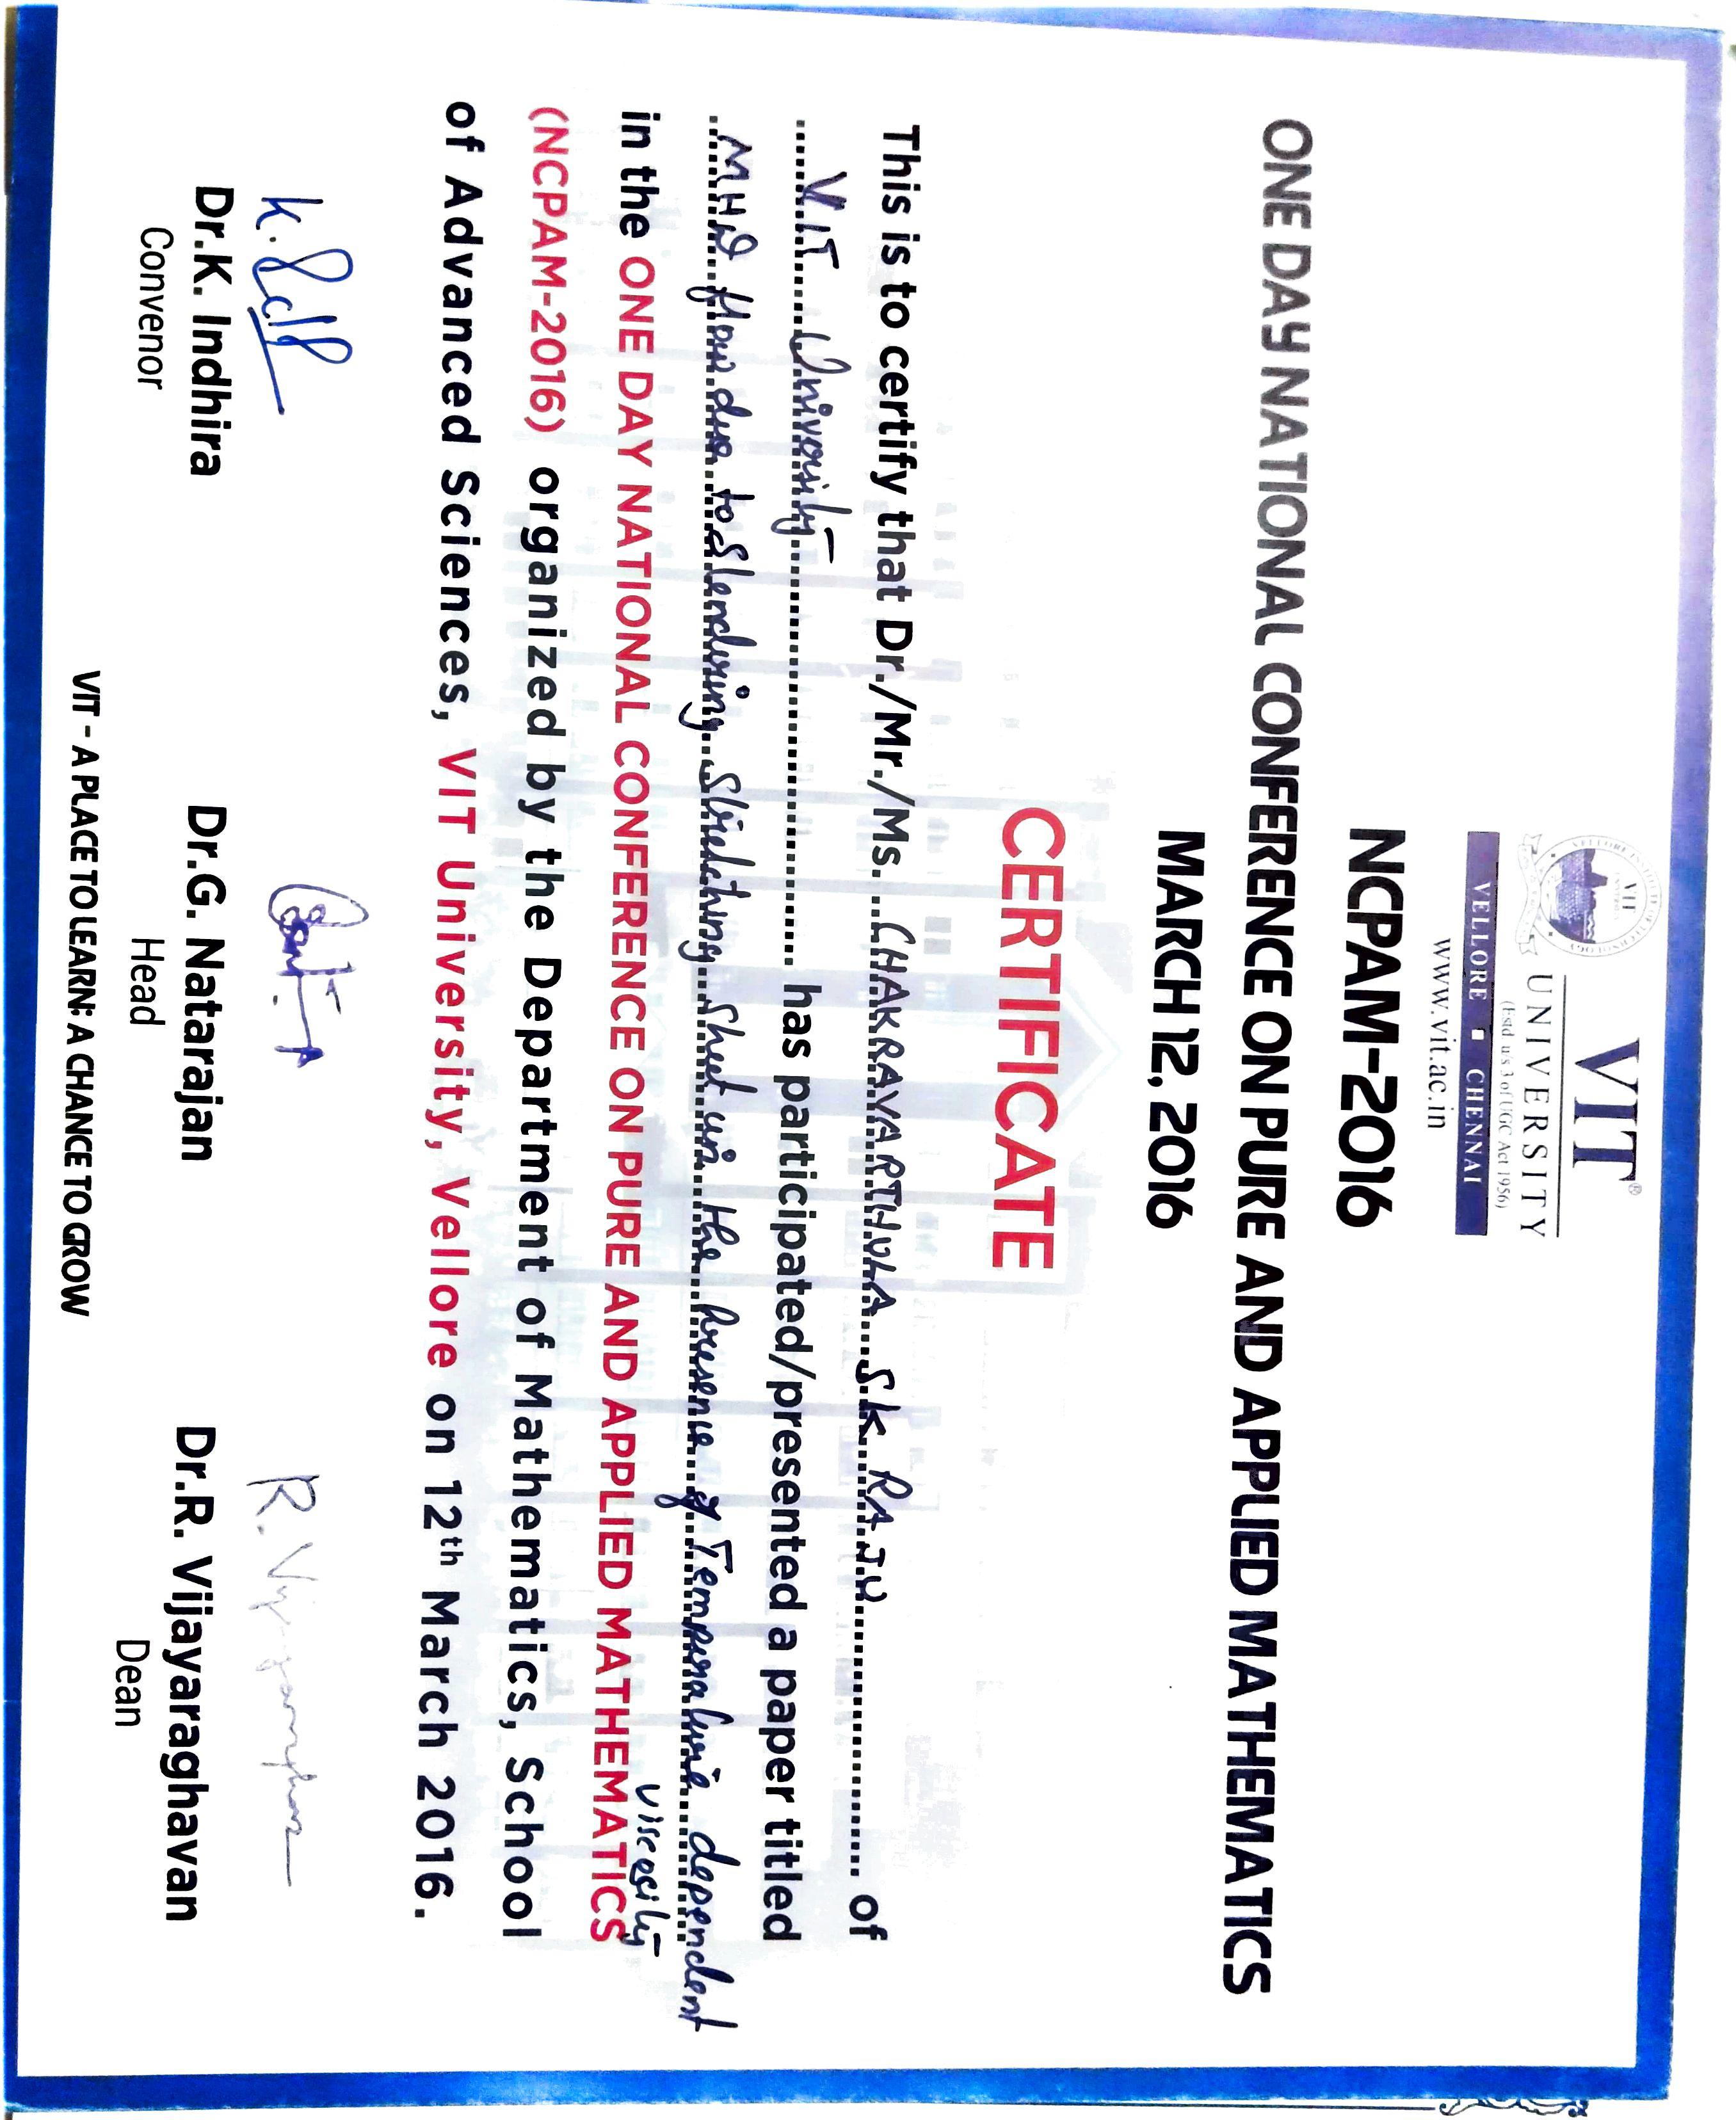 VIT®
UNIVERSITY
(Estd u/s 3 of UGC Act 1956)
VELLORE ▪ CHENNAI
www.vit.ac.in
NCPAM-2016
ONE DAY NATIONAL CONFERENCE ON PURE AND APPLIED MATHEMATICS
MARCH 12, 2016
CERTIFICATE
This is to certify that Dr./Mr./Ms. CHAKRAVARTHULA S.K RAJU of
VIT University has participated/presented a paper titled
MHD flow due to Slendering Stretching sheet in the presence of Temperature dependent
viscosity
in the ONE DAY NATIONAL CONFERENCE ON PURE AND APPLIED MATHEMATICS
(NCPAM-2016) organized by the Department of Mathematics, School
of Advanced Sciences, VIT University, Vellore on 12th March 2016.
Dr.K. Indhira Dr.G. Natarajan Dr.R. Vijayaraghavan
Convenor Head Dean
VIT - A PLACE TO LEARN; A CHANCE TO GROW